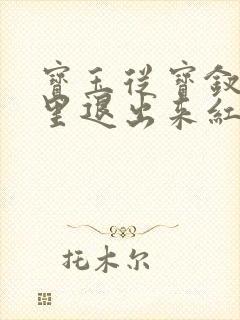 寶玉從寶釵
里退出來紅
托木尔